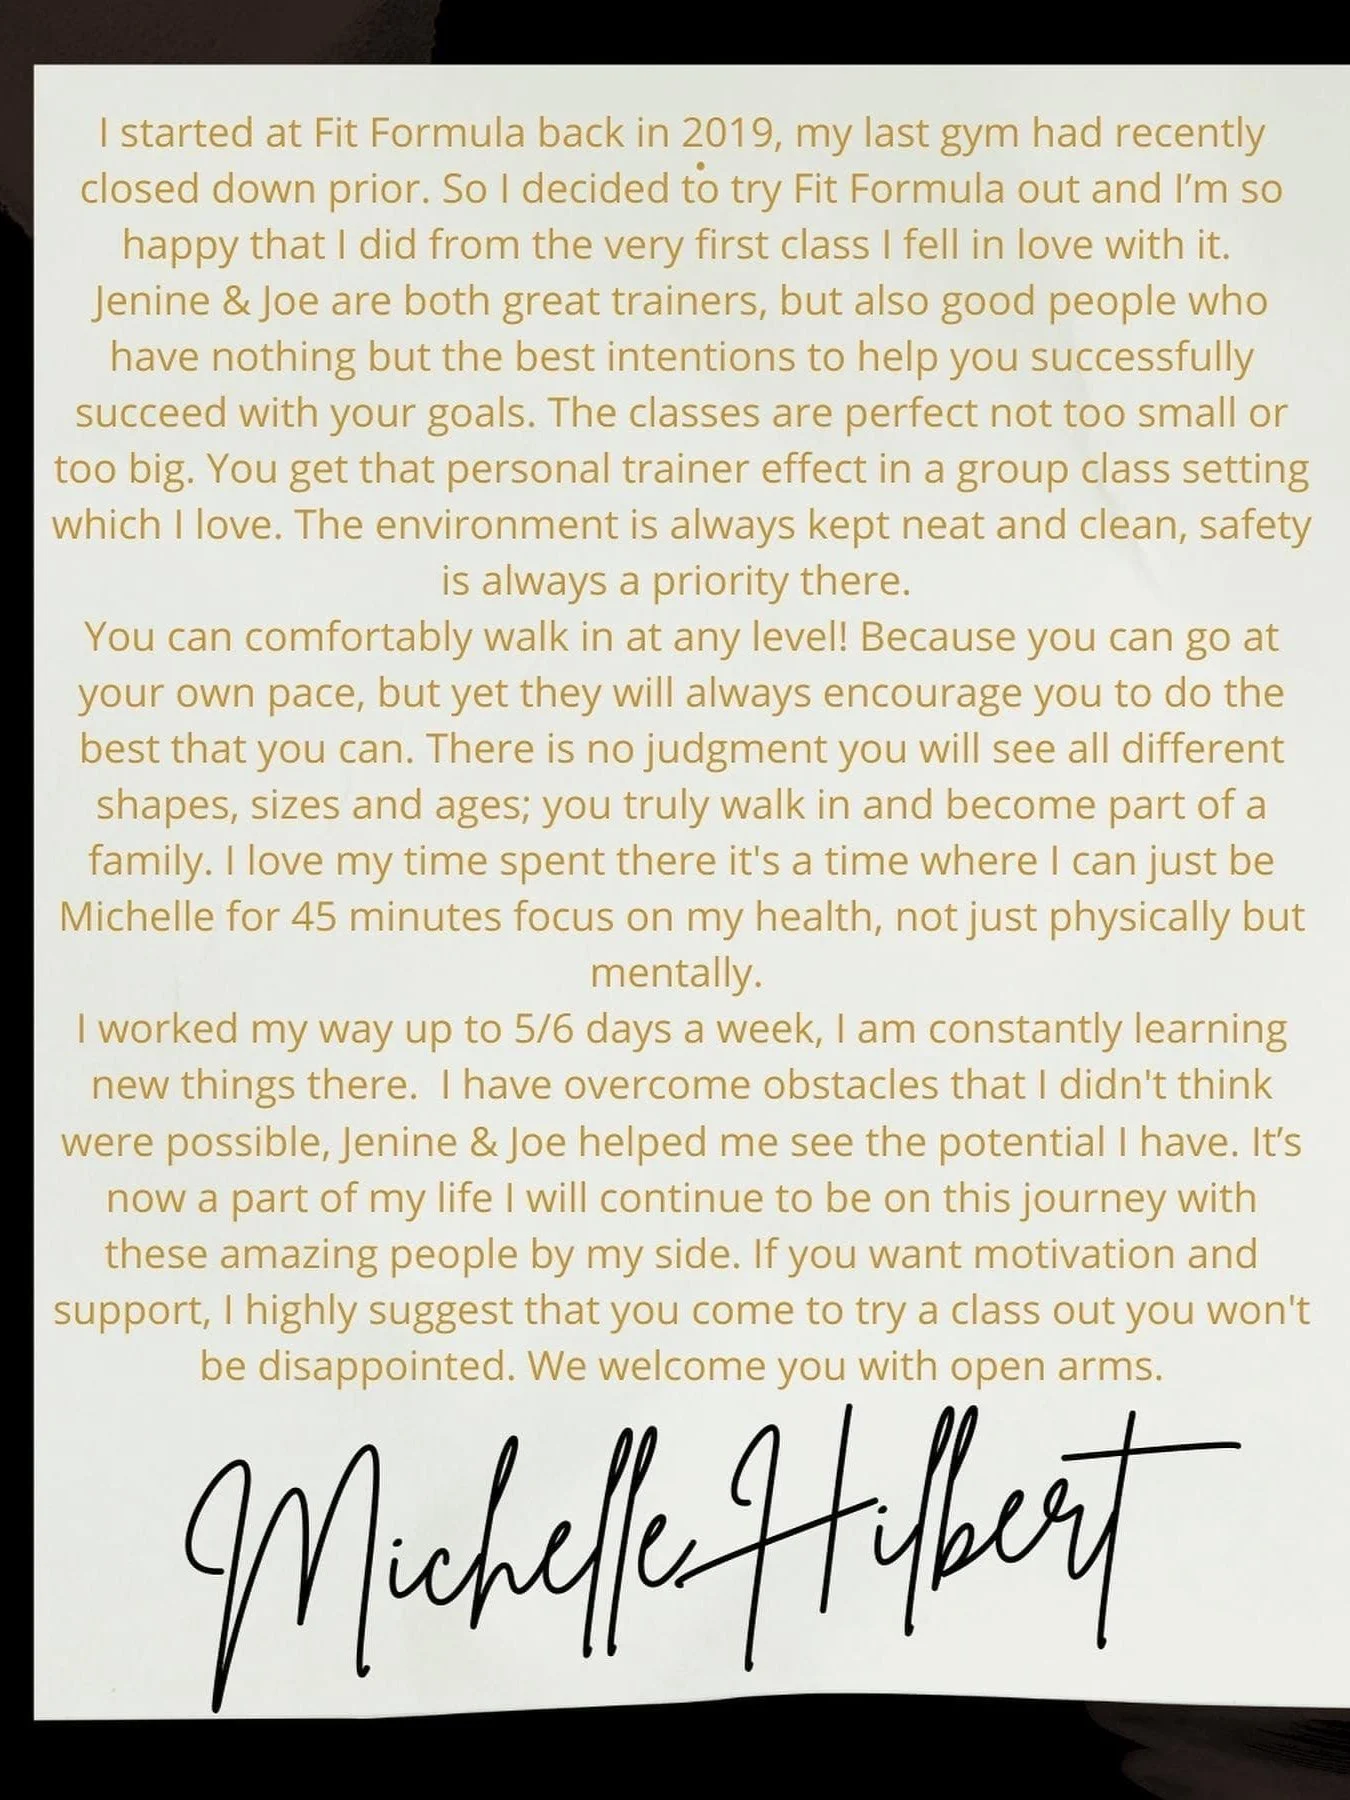 I started at Fit Formula back in 2019, my last gym had recently
closed down prior. So I decided to try Fit Formula out and I’m so
happy that I did from the very first class I fell in love with it.
Jenine & Joe are both great trainers, but also good people who
have nothing but the best intentions to help you successfully
succeed with your goals. The classes are perfect not too small or
too big. You get that personal trainer effect in a group class setting
which I love. The environment is always kept neat and clean, safety
is always a priority there.
You can comfortably walk in at any level! Because you can go at
your own pace, but yet they will always encourage you to do the
best that you can. There is no judgment you will see all different
shapes, sizes and ages; you truly walk in and become part of a
family. I love my time spent there it's a time where I can just be
Michelle for 45 minutes focus on my health, not just physically but
mentally.
I worked my way up to 5/6 days a week, I am constantly learning
new things there.  I have overcome obstacles that I didn't think
were possible, Jenine & Joe helped me see the potential I have. It’s
now a part of my life I will continue to be on this journey with
these amazing people by my side. If you want motivation and
support, I highly suggest that you come to try a class out you won't
be disappointed. We welcome you with open arms.
Michelle Hilbert